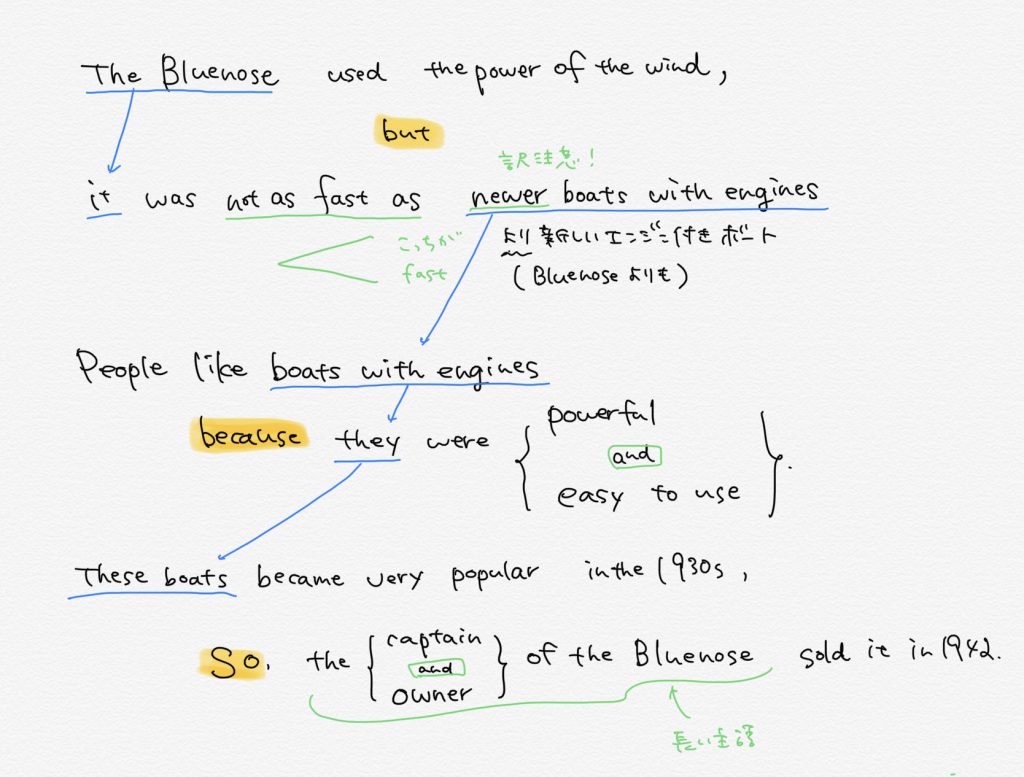 The Bluenose used the power of the wind,
but
訳注意!
it was not as fast as newer boats with engines
こっちが
fast
より新しいエンジン付きボート
(Bluenoseよりも)
People like boats with engines
powerful
because they were and
easy to use.
These boats became very popular in the 1930s,
captain
So, the and of the Bluenose sold it in 1942.
owner
長い主語